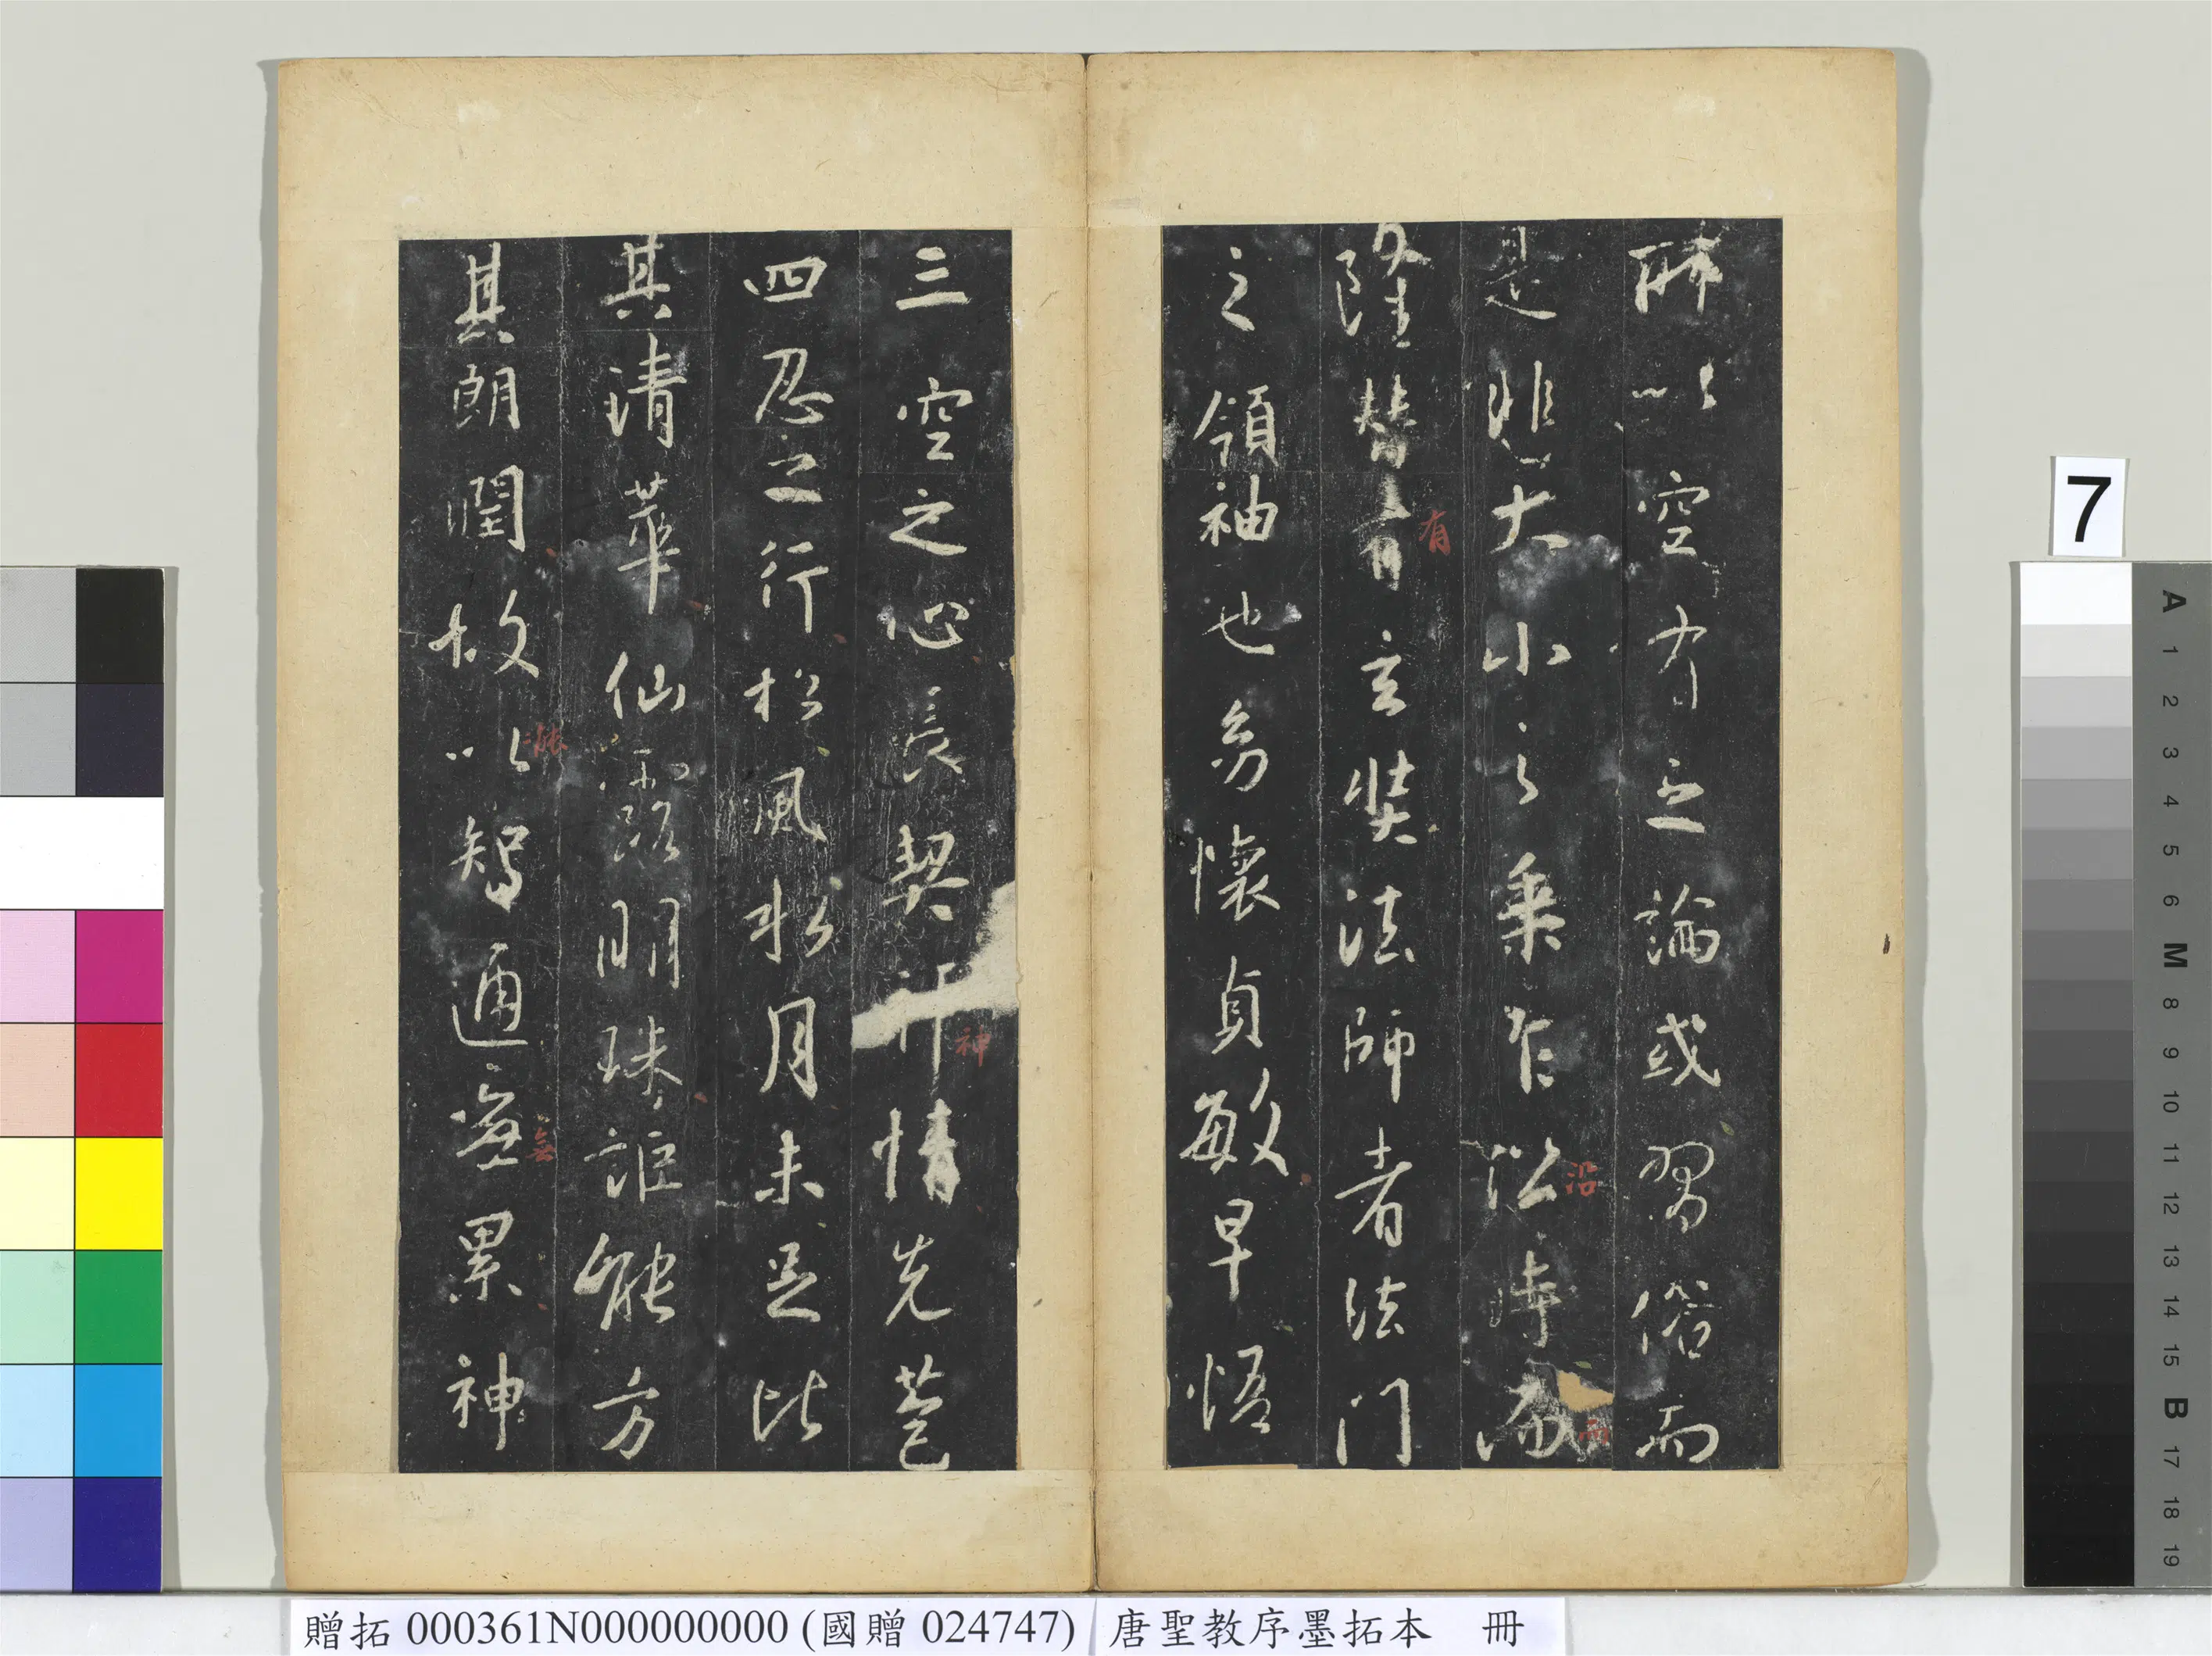 所以空有之論或習俗而
是非大小之乘乍沿時而
隆替有玄奘法師者法門
之領袖也幼懷貞敏早悟
有
沿
而
三空之心長契神情先苞
四忍之行松風水月未足比
其清華仙露明珠詎能方
其朗潤故以智通無累神
神
無
7
A 1 2 3 4 5 6 M 8 9 10 11 12 13 14 15 B 17 18 19
贈拓 000361N000000000 (國贈 024747) 唐聖教序墨拓本 冊